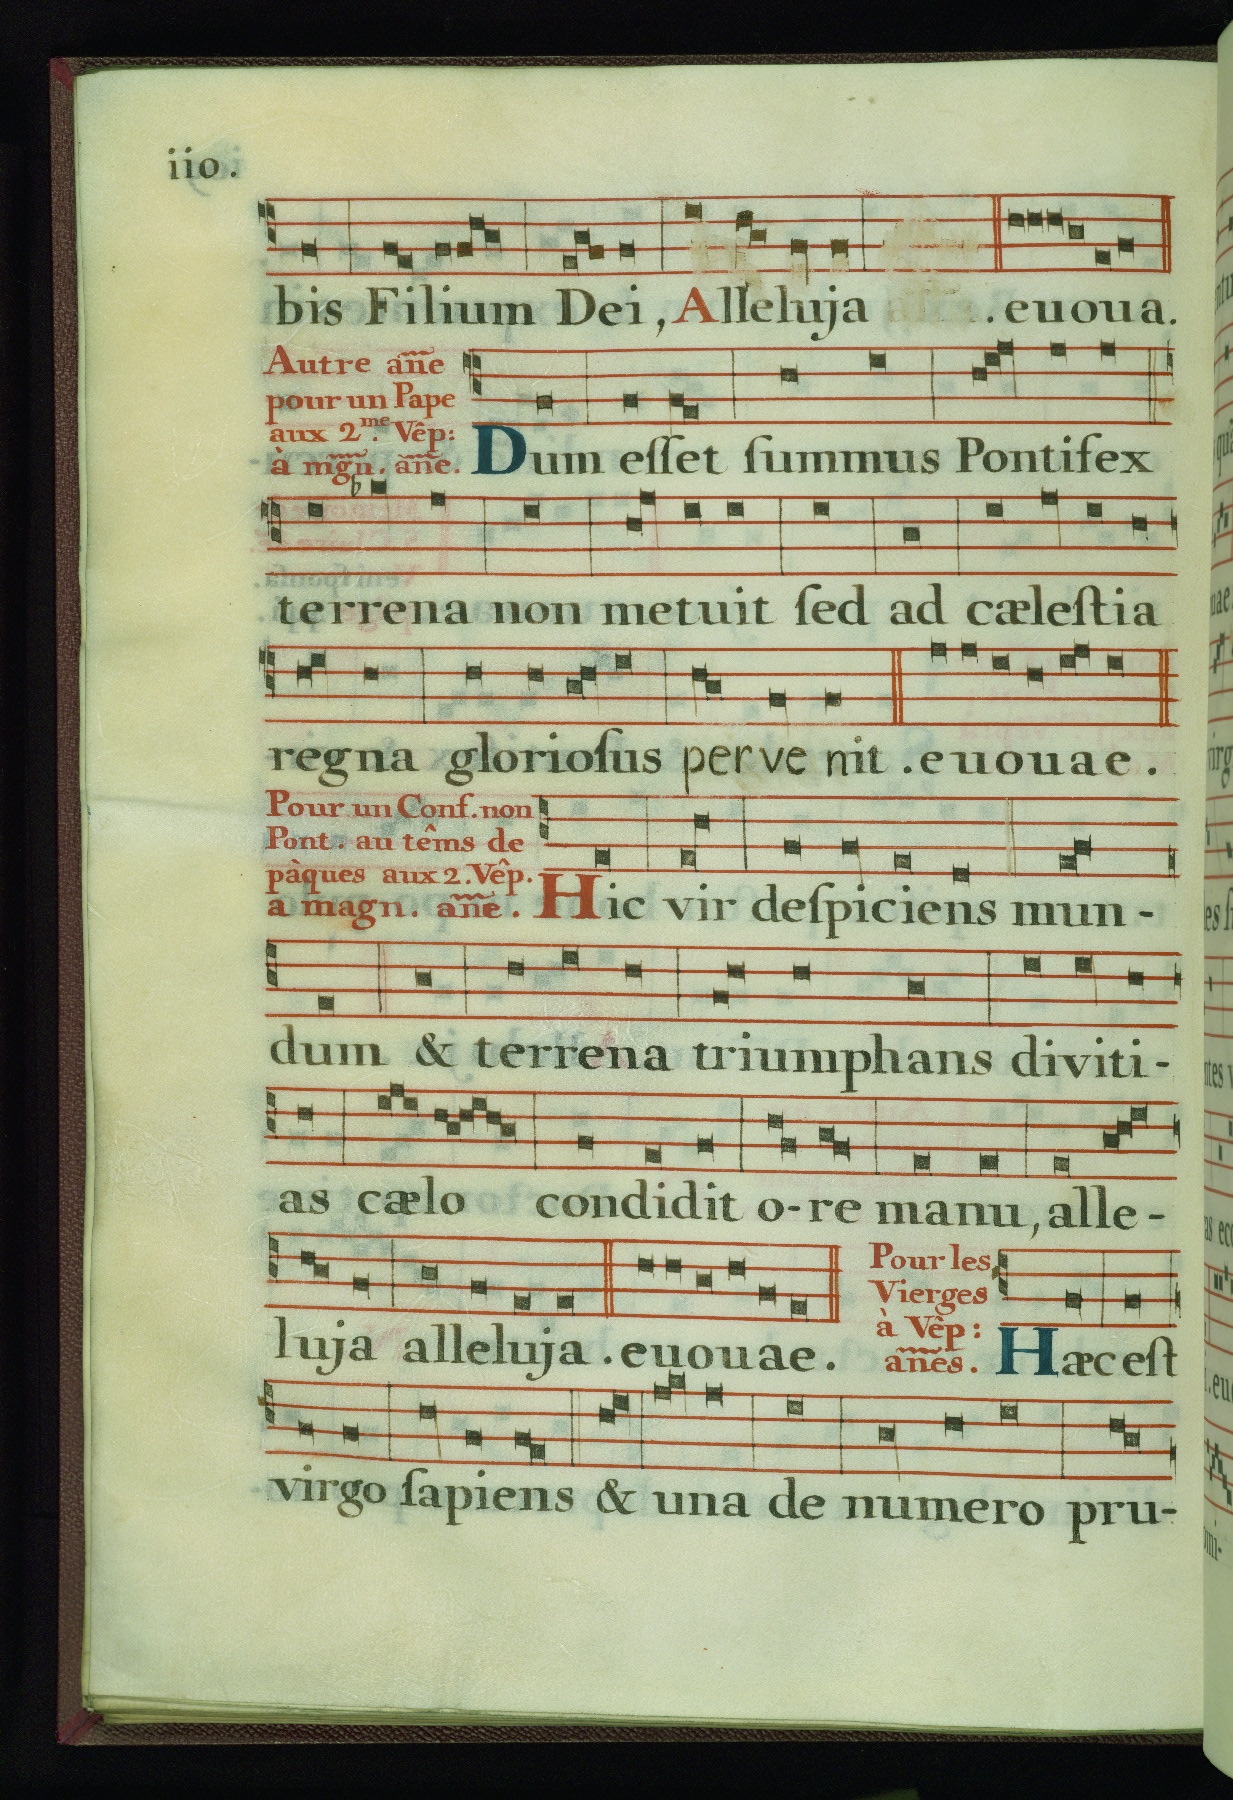 iio.
bis Filium Dei, Alleluja .euoua.
Autre añe
pour un Pape
aux 2.me Vêp:
à mgñ. añe.
Dum eſſet ſummus Pontifex
b
terrena non metuit ſed ad cæleſtia
regna glorioſus perve nit .euouae.
Pour un Conf. non
Pont. au têms de
pàques aux 2. Vêp.
a magn. añe.
Hic vir deſpiciens mun-
dum & terrena triumphans diviti-
as cælo condidit o-re manu, alle-
luja alleluja .euouae.
Pour les
Vierges
à Vêp:
añes.
Hæc eſt
virgo ſapiens & una de numero pru-